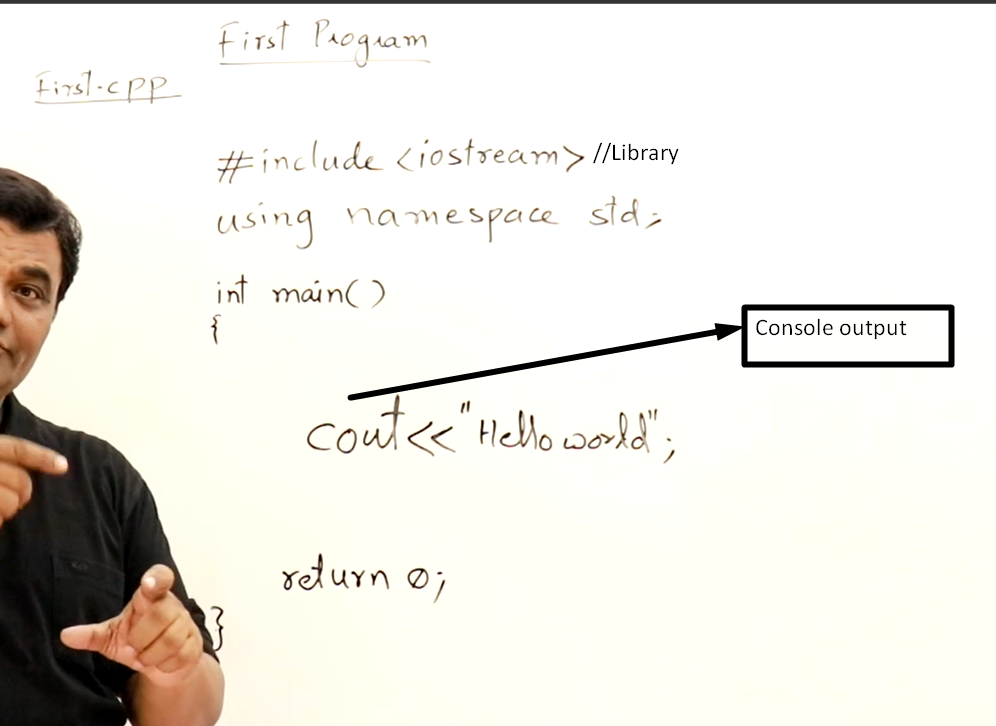 First Program
First.cpp
#include <iostream> //Library
using namespace std;
int main()
{
Console output
cout<<"Hello world";
return 0;
}